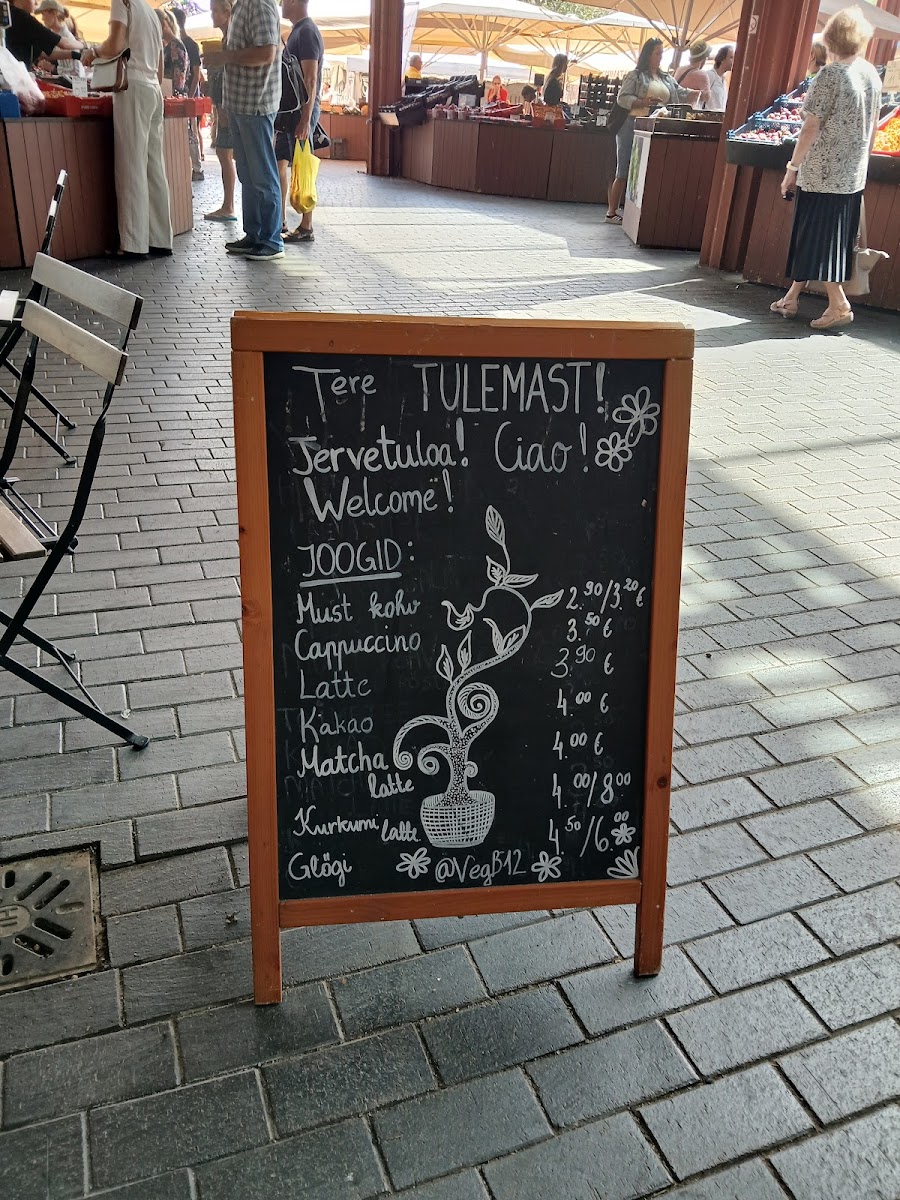 Tere TULEMAST!
Jervetuloa! Ciao!
Welcomë!
JOOGID:
Must kohv 2.90/3.20€
Cappuccino 3.50 €
Latte 3.90 €
Kakao 4.00 €
Matcha latte 4.00 €
Kurkumi latte 4.00/8.00
Glögi 4.50/6.00
@VegB12